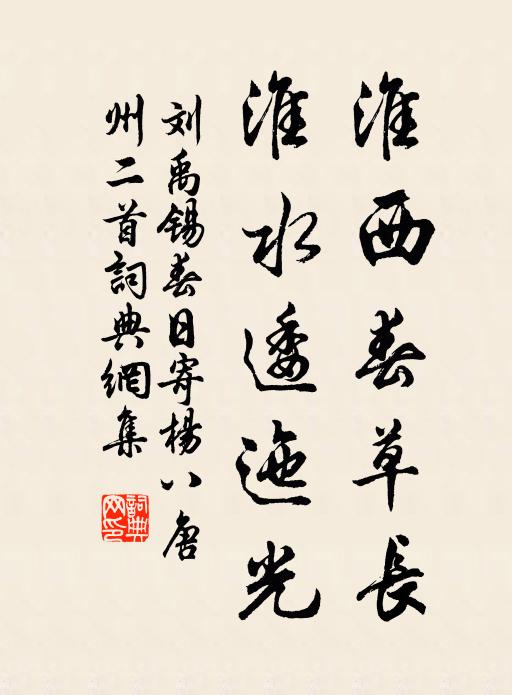 淮西春草長
淮水逶迤光
刘禹锡春日寄楊八唐
州二首詞典網集
詞典
网印